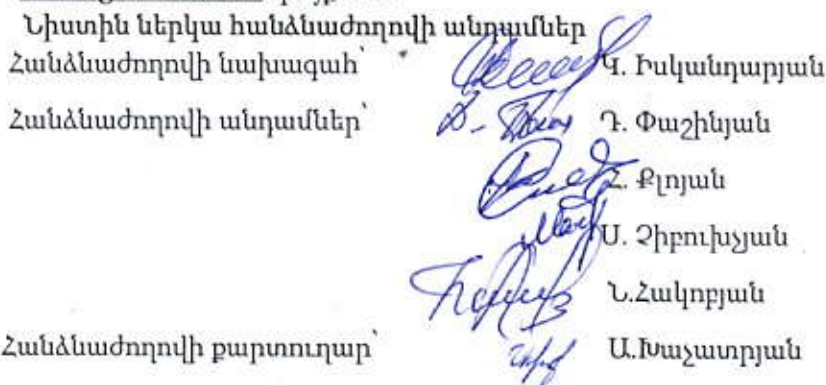 Նիստին ներկա հանձնաժողովի անդամներ
Հանձնաժողովի նախագահ՝ Կ. Իսկանդարյան
Հանձնաժողովի անդամներ՝ Դ. Փաշինյան
Հ. Քլոյան
Ս. Չիբուխչյան
Ն.Հակոբյան
Հանձնաժողովի քարտուղար՝ Ա.Խաչատրյան